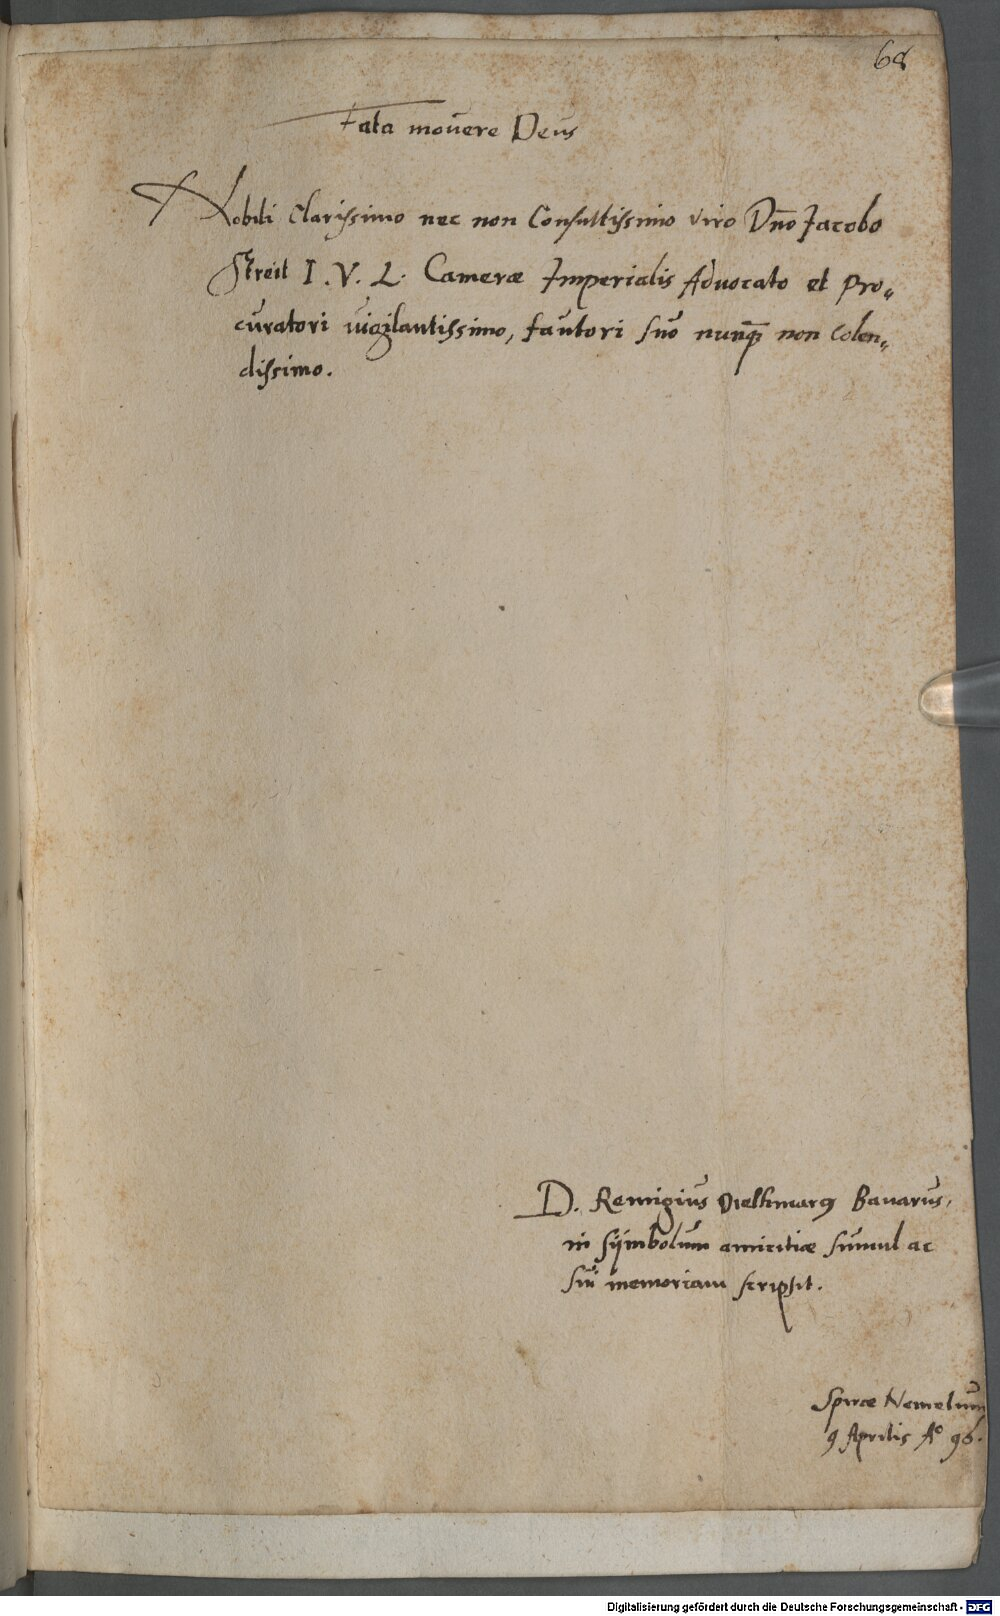 68
Fata movere Deus
Nobili Clarissimo nec non Consultissimo viro Dn̄o Jacobo
Streit I. V. L. Cameræ Imperialis Advocato et Pro„
curatori vigilantissimo, fautori suo nunq̄ non Colen„
dissimo.
D. Remigius Bavarus,
in sÿmbolum amicitiæ simul ac
sui memoriam scripsit.
Spiræ Nemetum
9 Aprilis A° 96.
Digitalisierung gefördert durch die Deutsche Forschungsgemeinschaft - DFG